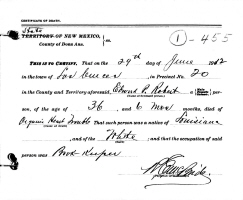 CERTIFICATE OF DEATH.
State
TERRITORY OF NEW MEXICO, ss.
County of Dona Ana.
1-455
THIS IS TO CERTIFY, That on the 29th day of June 1912
in the town of Las Cruces in Precinct No. 20
in the County and Territory aforesaid, Edward P. Robert a
person, of the age of 36 and 6 mos months, died of
Organic Heart Trouble That such person was a native of Louisiana
and of the White and that the occupation of said
person was Book Keeper